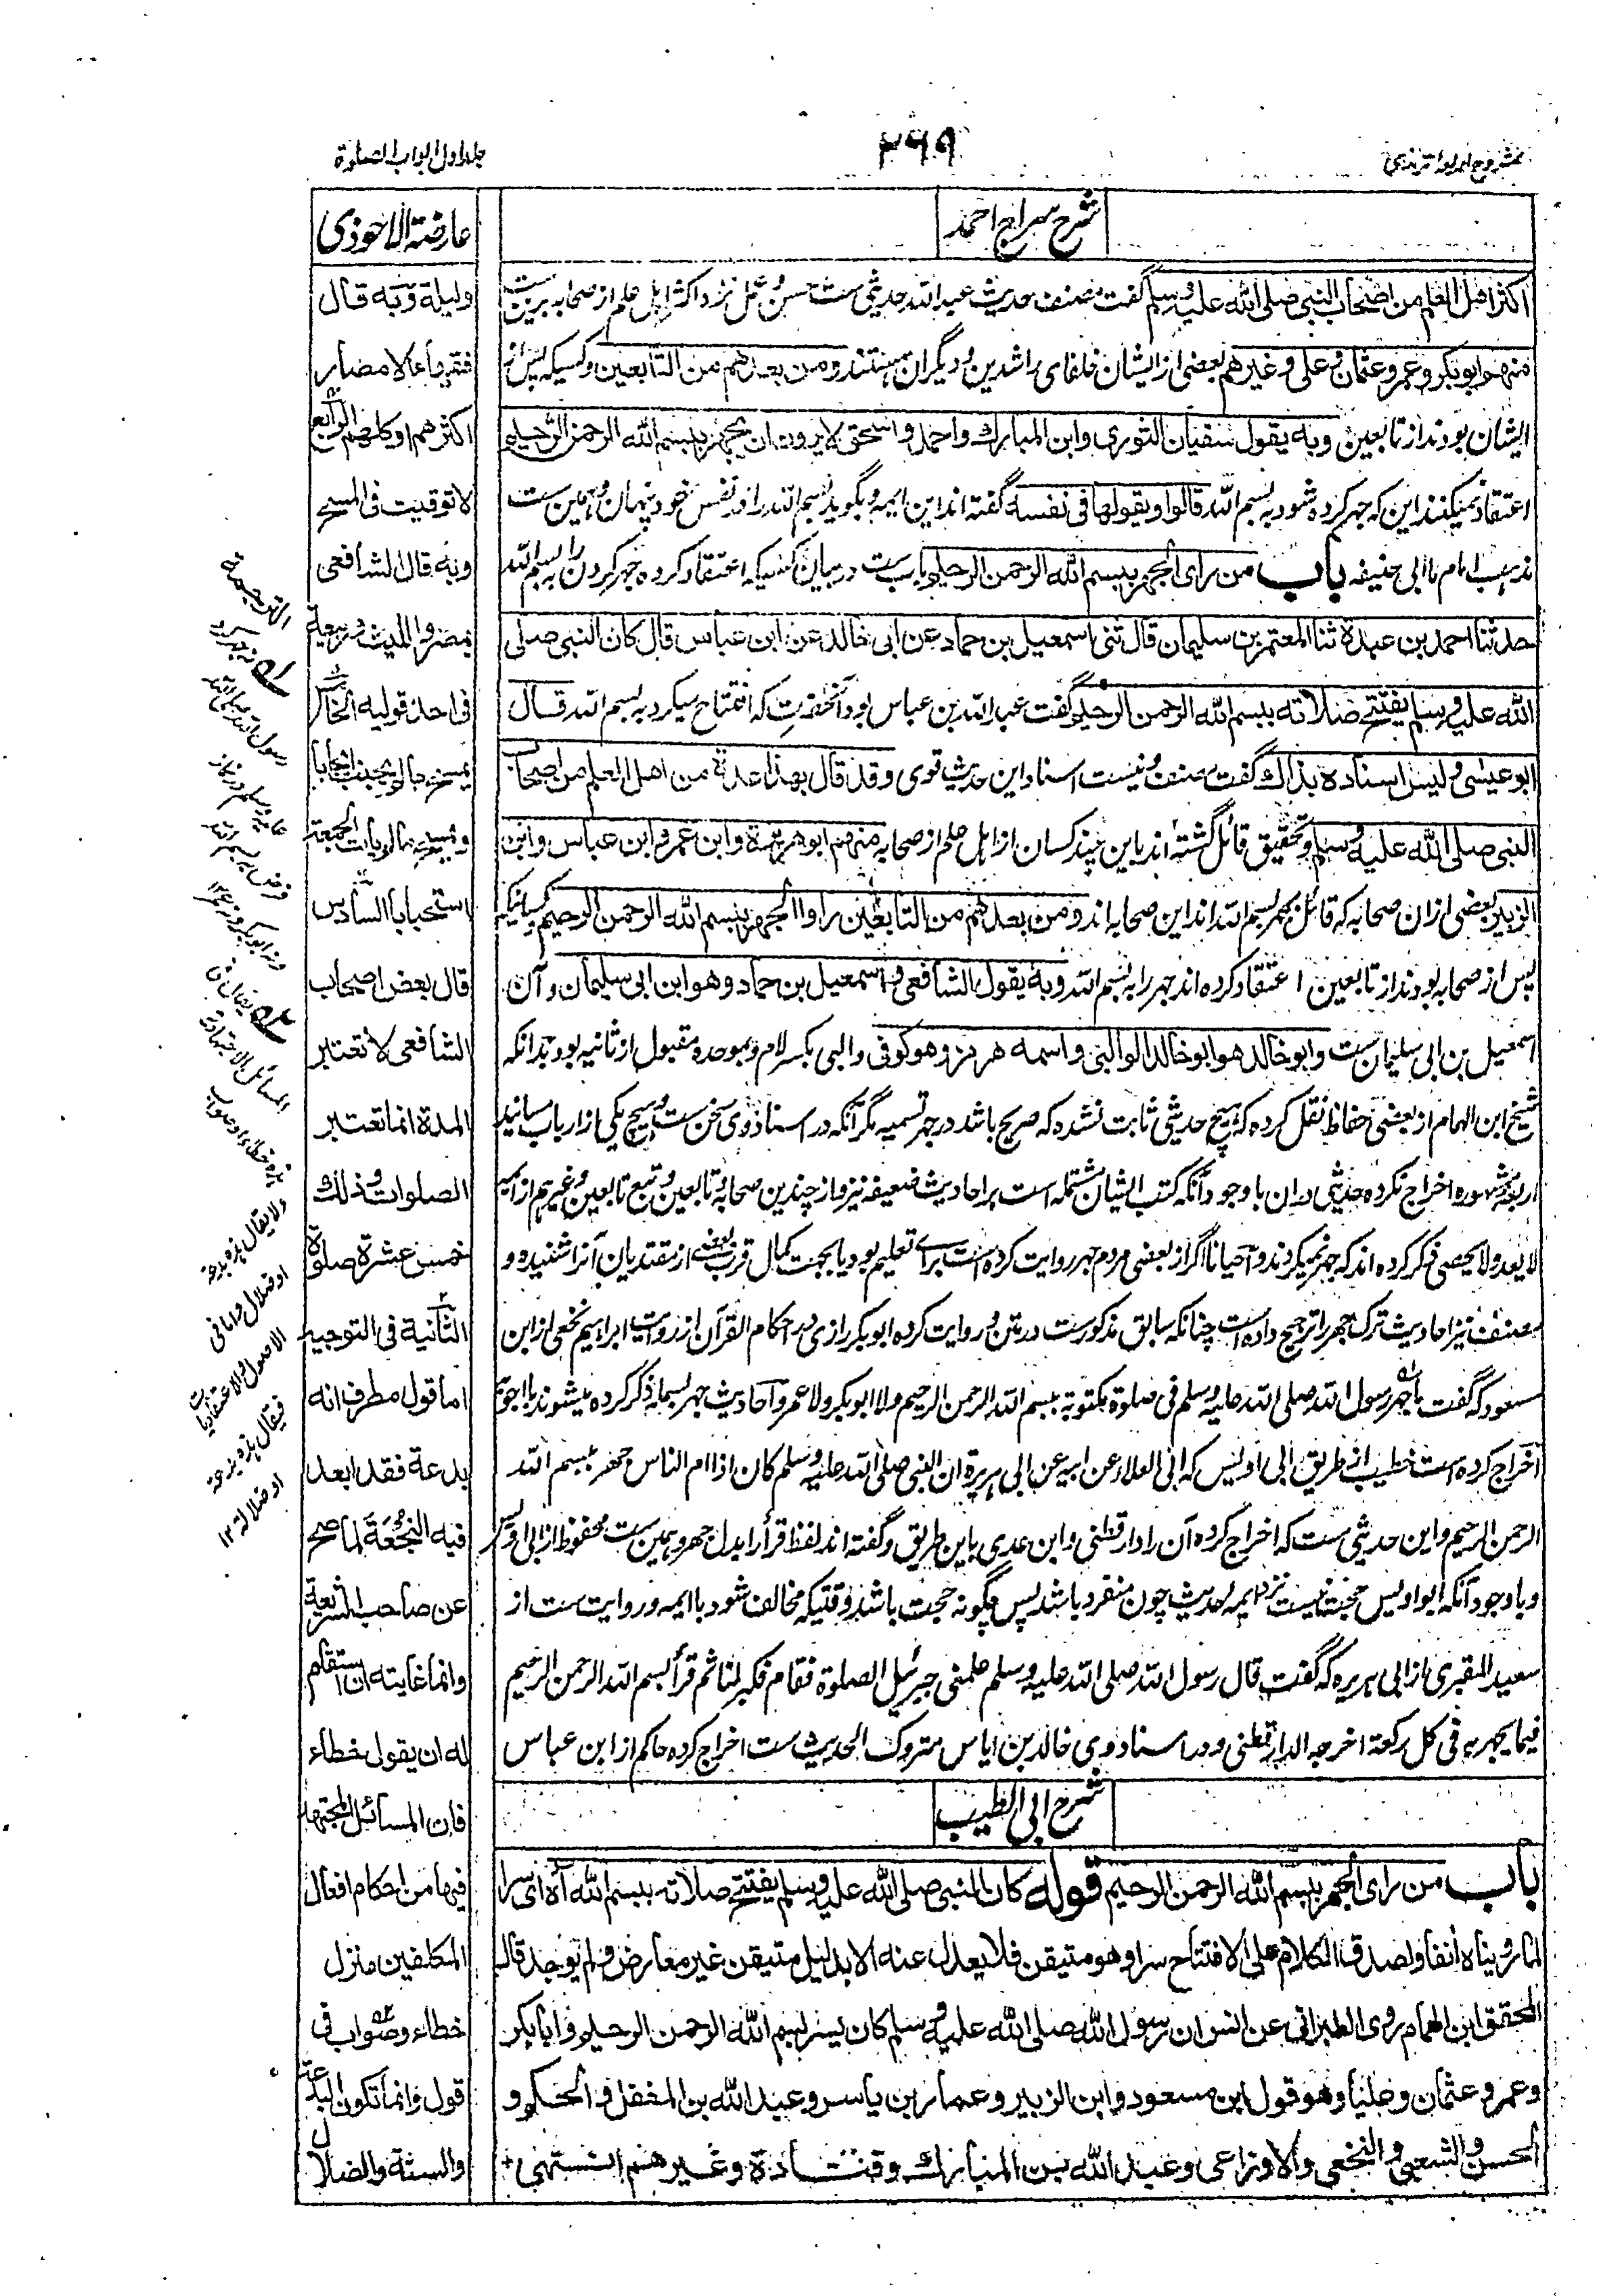 شروح اربعه ترمذی
۲۶۹
جلد اول ابواب الصلوة
شرح سراج احمد
اکثر اهل العلم من اصحاب النبی صلی الله علیه وسلم گفت مصنف حدیث عبد الله حدیثی ست حسن و عمل نزد اکثر اہل علم از صحابه برین ست
منهم ابو بکر وعمر وعثمان وعلی وغیرهم بعضی از ایشان خلفای راشدین و دیگران ہستند ومن بعدهم من التابعین وکسیکه پس از
ایشان بودند از تابعین وبه یقول سفیان الثوری وابن المبارك واحمد واسحق لا یرون ان یجهر ببسم الله الرحمن الرحیم
اعتقاد نمیکنند این که جهر کرده شود به بسم الله قالوا ویقولها فی نفسه گفته اند این ایمه وبگوید بسم الله را در نفس خود پنهان وہمین ست
مذہب امام ما ابی حنیفه باب من رای الجهر ببسم الله الرحمن الرحیم باب ست در بیان کسیکه اعتقاد کرده جهر کردن را به بسم الله
حدثنا احمد بن عبدة ثنا المعتمر بن سلیمان قال ثنی اسمعیل بن حماد عن ابی خالد عن ابن عباس قال کان النبی صلی
الله علیه وسلم یفتتح صلاته ببسم الله الرحمن الرحیم گفت عبد الله بن عباس بود آنحضرت که افتتاح میکرد به بسم الله قال
ابو عیسی ولیس اسناده بذاك گفت مصنف ونیست اسناد این حدیث قوی وقد قال بهذا عدة من اهل العلم من اصحاب
النبی صلی الله علیه وسلم وتحقیق قائل گشته اند باین چند کسان از اہل علم از صحابه منهم ابو هریرة وابن عمر وابن عباس وابن
الزبیر بعضی ازان صحابه که قائل بجهر بسم الله اند این صحابه اند ومن بعدهم من التابعین راوا الجهر ببسم الله الرحمن الرحیم کسانیکه
پس از صحابه بودند از تابعین اعتقاد کرده اند جهر را به بسم الله وبه یقول الشافعی واسمعیل بن حماد وهو ابن ابی سلیمان وآن
اسمعیل بن ابی سلیمان ست وابو خالد هو ابو خالد الوالبی واسمه هرمز وهو کوفی والبی بکسر لام وبموحده مقبول از ثانیه بود بدانکه
شیخ ابن الہمام از بعضی حفاظ نقل کرده که ہیچ حدیثی ثابت نشده که صریح باشد در جهر تسمیه مگر آنکه در اسناد وی سخن ست وہیچ یکی از ارباب مسانید
اربعه مشهوره اخراج نکرده حدیثی دران با وجود آنکه کتب ایشان مشتمله است بر احادیث ضعیفه نیز واز چندین صحابه وتابعین وتبع تابعین وغیرہم از ایمه
لا یعد ولا یحصی ذکر کرده اند که جهر نمیکردند واحیانا اگر از بعضی مردم جهر روایت کرده است برای تعلیم بود یا بجهت کمال قرب بعضی از مقتدیان آنرا شنیده و
مصنف نیز احادیث ترک جهر را ترجیح داده است چنانکه سابق مذکور ست در متن وروایت کرده ابو بکر رازی در احکام القرآن از روایت ابراہیم نخعی از ابن
مسعود که گفت ما جهر رسول الله صلی الله علیه وسلم فی صلوة مکتوبة ببسم الله الرحمن الرحیم ولا ابو بکر ولا عمر واحادیث جهر بسمله ذکر کرده میشوند با اجوبه
اخراج کرده است خطیب از طریق ابی اویس که انی العلاء عن ابیه عن ابی ہریرة ان النبی صلی الله علیه وسلم کان اذا ام الناس جهر ببسم الله
الرحمن الرحیم واین حدیثی ست که اخراج کرده آن را دارقطنی وابن عدی باین طریق وگفته اند لفظ قرأ را بدل جهر وہمین ست محفوظ از ابی اویس
وبا وجود آنکه ابو اویس حجت نیست نزد ایمه حدیث چون منفرد باشد پس چگونه حجت باشد وقتیکه مخالف شود با ایمه وروایت ست از
سعید المقبری از ابی ہریره که گفت قال رسول الله صلی الله علیه وسلم علمنی جبرئیل الصلوة فقام فکبر لنا ثم قرأ بسم الله الرحمن الرحیم
فیما یجهر به فی کل رکعة اخرجه الدارقطنی ودر اسناد وی خالد بن ایاس متروک الحدیث ست اخراج کرده حاکم از ابن عباس
شرح ابی الطیب
باب من رای الجهر ببسم الله الرحمن الرحیم قوله کان النبی صلی الله علیه وسلم یفتتح صلاته ببسم الله آه ای سرا
لما رویناه آنفا ولصدق الکلام علی الافتتاح سرا وهو متیقن فلا یعدل عنه الا بدلیل متیقن غیر معارض ولم یوجد قال
المحقق ابن الهمام روی الطبرانی عن انس ان رسول الله صلی الله علیه وسلم کان یسر ببسم الله الرحمن الرحیم وابا بکر
وعمر وعثمان وعلیا وهو قول ابن مسعود وابن الزبیر وعمار بن یاسر وعبد الله بن المغفل والحکم و
الحسن والشعبی والنخعی والاوزاعی وعبد الله بن المبارك وقتادة وغیرهم انتهی
عارضة الاحوذی
ولیلة وبه قال
فقهاء الامصار
اکثرهم او کلهم الرابع
لا توقیت فی المسح
وبه قال الشافعی
بمصر واللیث وربیعة
فی احد قولیه الخامس
یمسح ما لم یجنب ایجابا
ویمسح ما لم یات الجمعة
استحبابا السادس
قال بعض اصحاب
الشافعی لا تعتبر
المدة انما تعتبر
الصلوات وذلك
خمس عشرة صلوة
الثانیة فی التوجیه
اما قول مطرف انه
بدعة فقد ابعد
فیه النجعة لما صح
عن صاحب الشریعة
وانما غایته ان استقام
له ان یقول خطاء
فان المسائل المجتهد
فیها من احکام افعال
المکلفین منزل
خطاء وصواب فی
قول وانما تکون البدعة
والسنة والضلال
الترجمة
نه جهر کرد
رسول الله صلی الله
علیه وسلم در نماز
فرض به بسم الله
ونه ابو بکر ونه عمر ۱۲
یقال فی
المسائل الاجتهادیة
هذه خطاء او صواب
ولا یقال هذه بدعة
او ضلال واما فی
الاصول والاعتقادیات
فیقال هذه بدعة
او ضلالة ۱۲